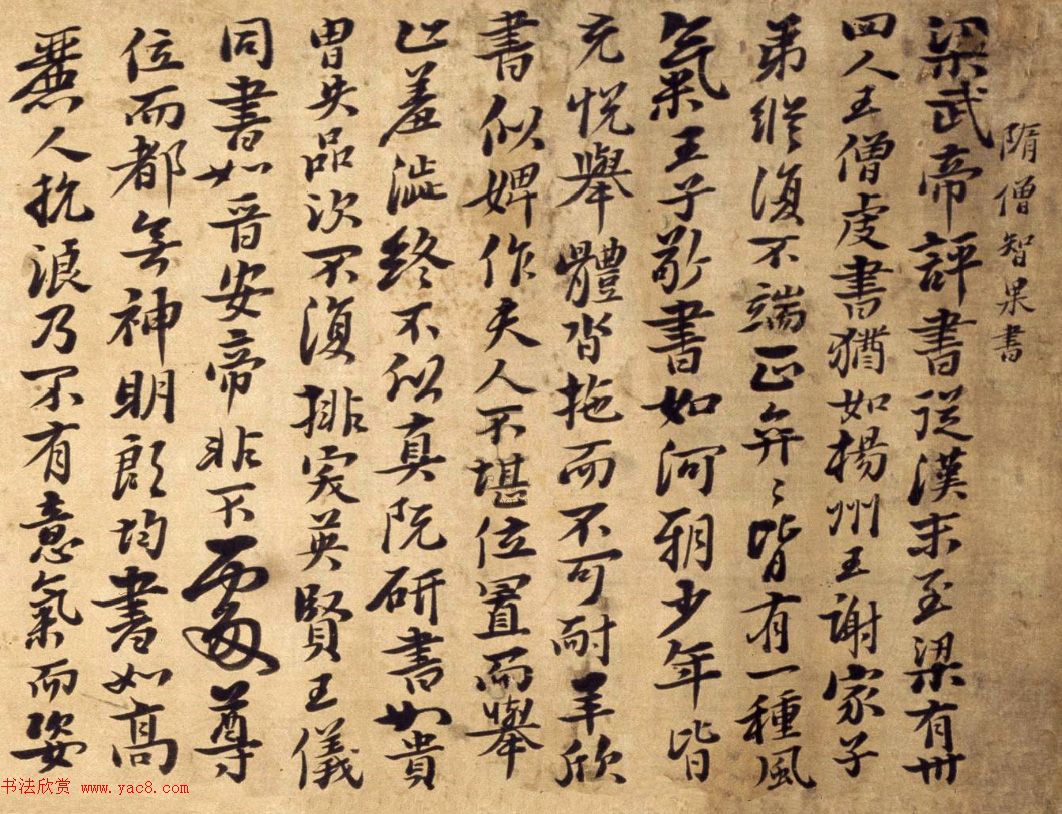 隋僧智果書
梁武帝評書從漢末至梁有卅
四人王僧虔書猶如楊州王謝家子
弟縱復不端正弈〻皆有一種風
氣王子敬書如河朔少年皆
充悅舉體沓拖而不可耐羊欣
書似婢作夫人不堪位置而舉
止羞澁終不似真阮研書如貴
胄失品次不復排突英賢王儀
同書如晉安帝非不處尊
位而都無神明郎均書如高
麗人抗浪乃不有意氣而姿
书法欣赏 www.yac8.com